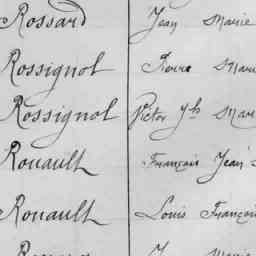 Rossard Jean Marie
Rossignol Pierre Marie
Rossignol Victor Jh Mar
Rouault François Jean
Rouault Louis Françoi
Marie